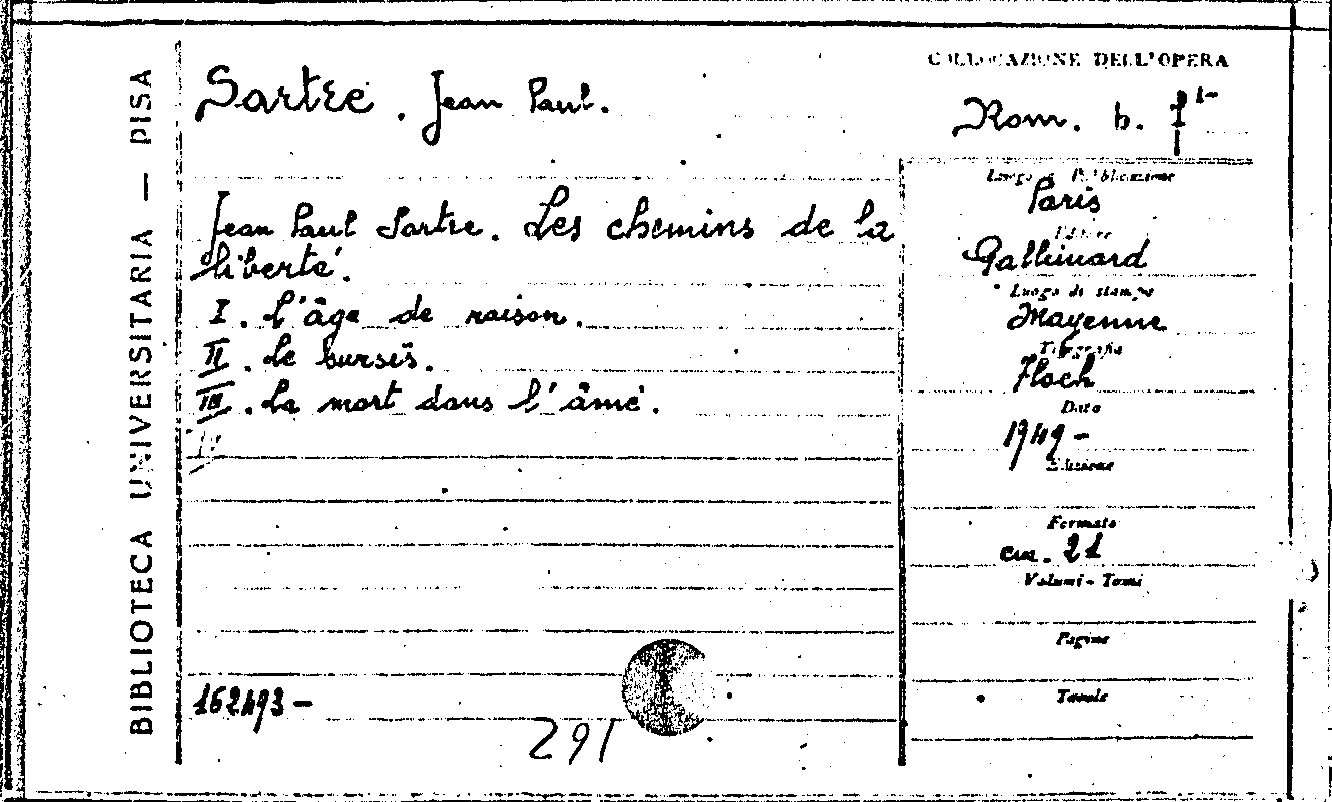 BIBLIOTECA UNIVERSITARIA — PISA
Sartre. Jean Paul.
Jean Paul Sartre. Les chemins de la
liberté.
I. L'âge de raison.
II. Le sursis.
III. La mort dans l'âme.
IV
162493-
291
COLLOCAZIONE DELL'OPERA
Rom. b.
Luogo di Pubblicazione
Paris
Editore
Gallimard
Luogo di stampa
Mayenne
Tipografia
Floch
Data
1949-
Edizione
Formato
cm. 21
Volumi - Tomi
Pagine
Tavole